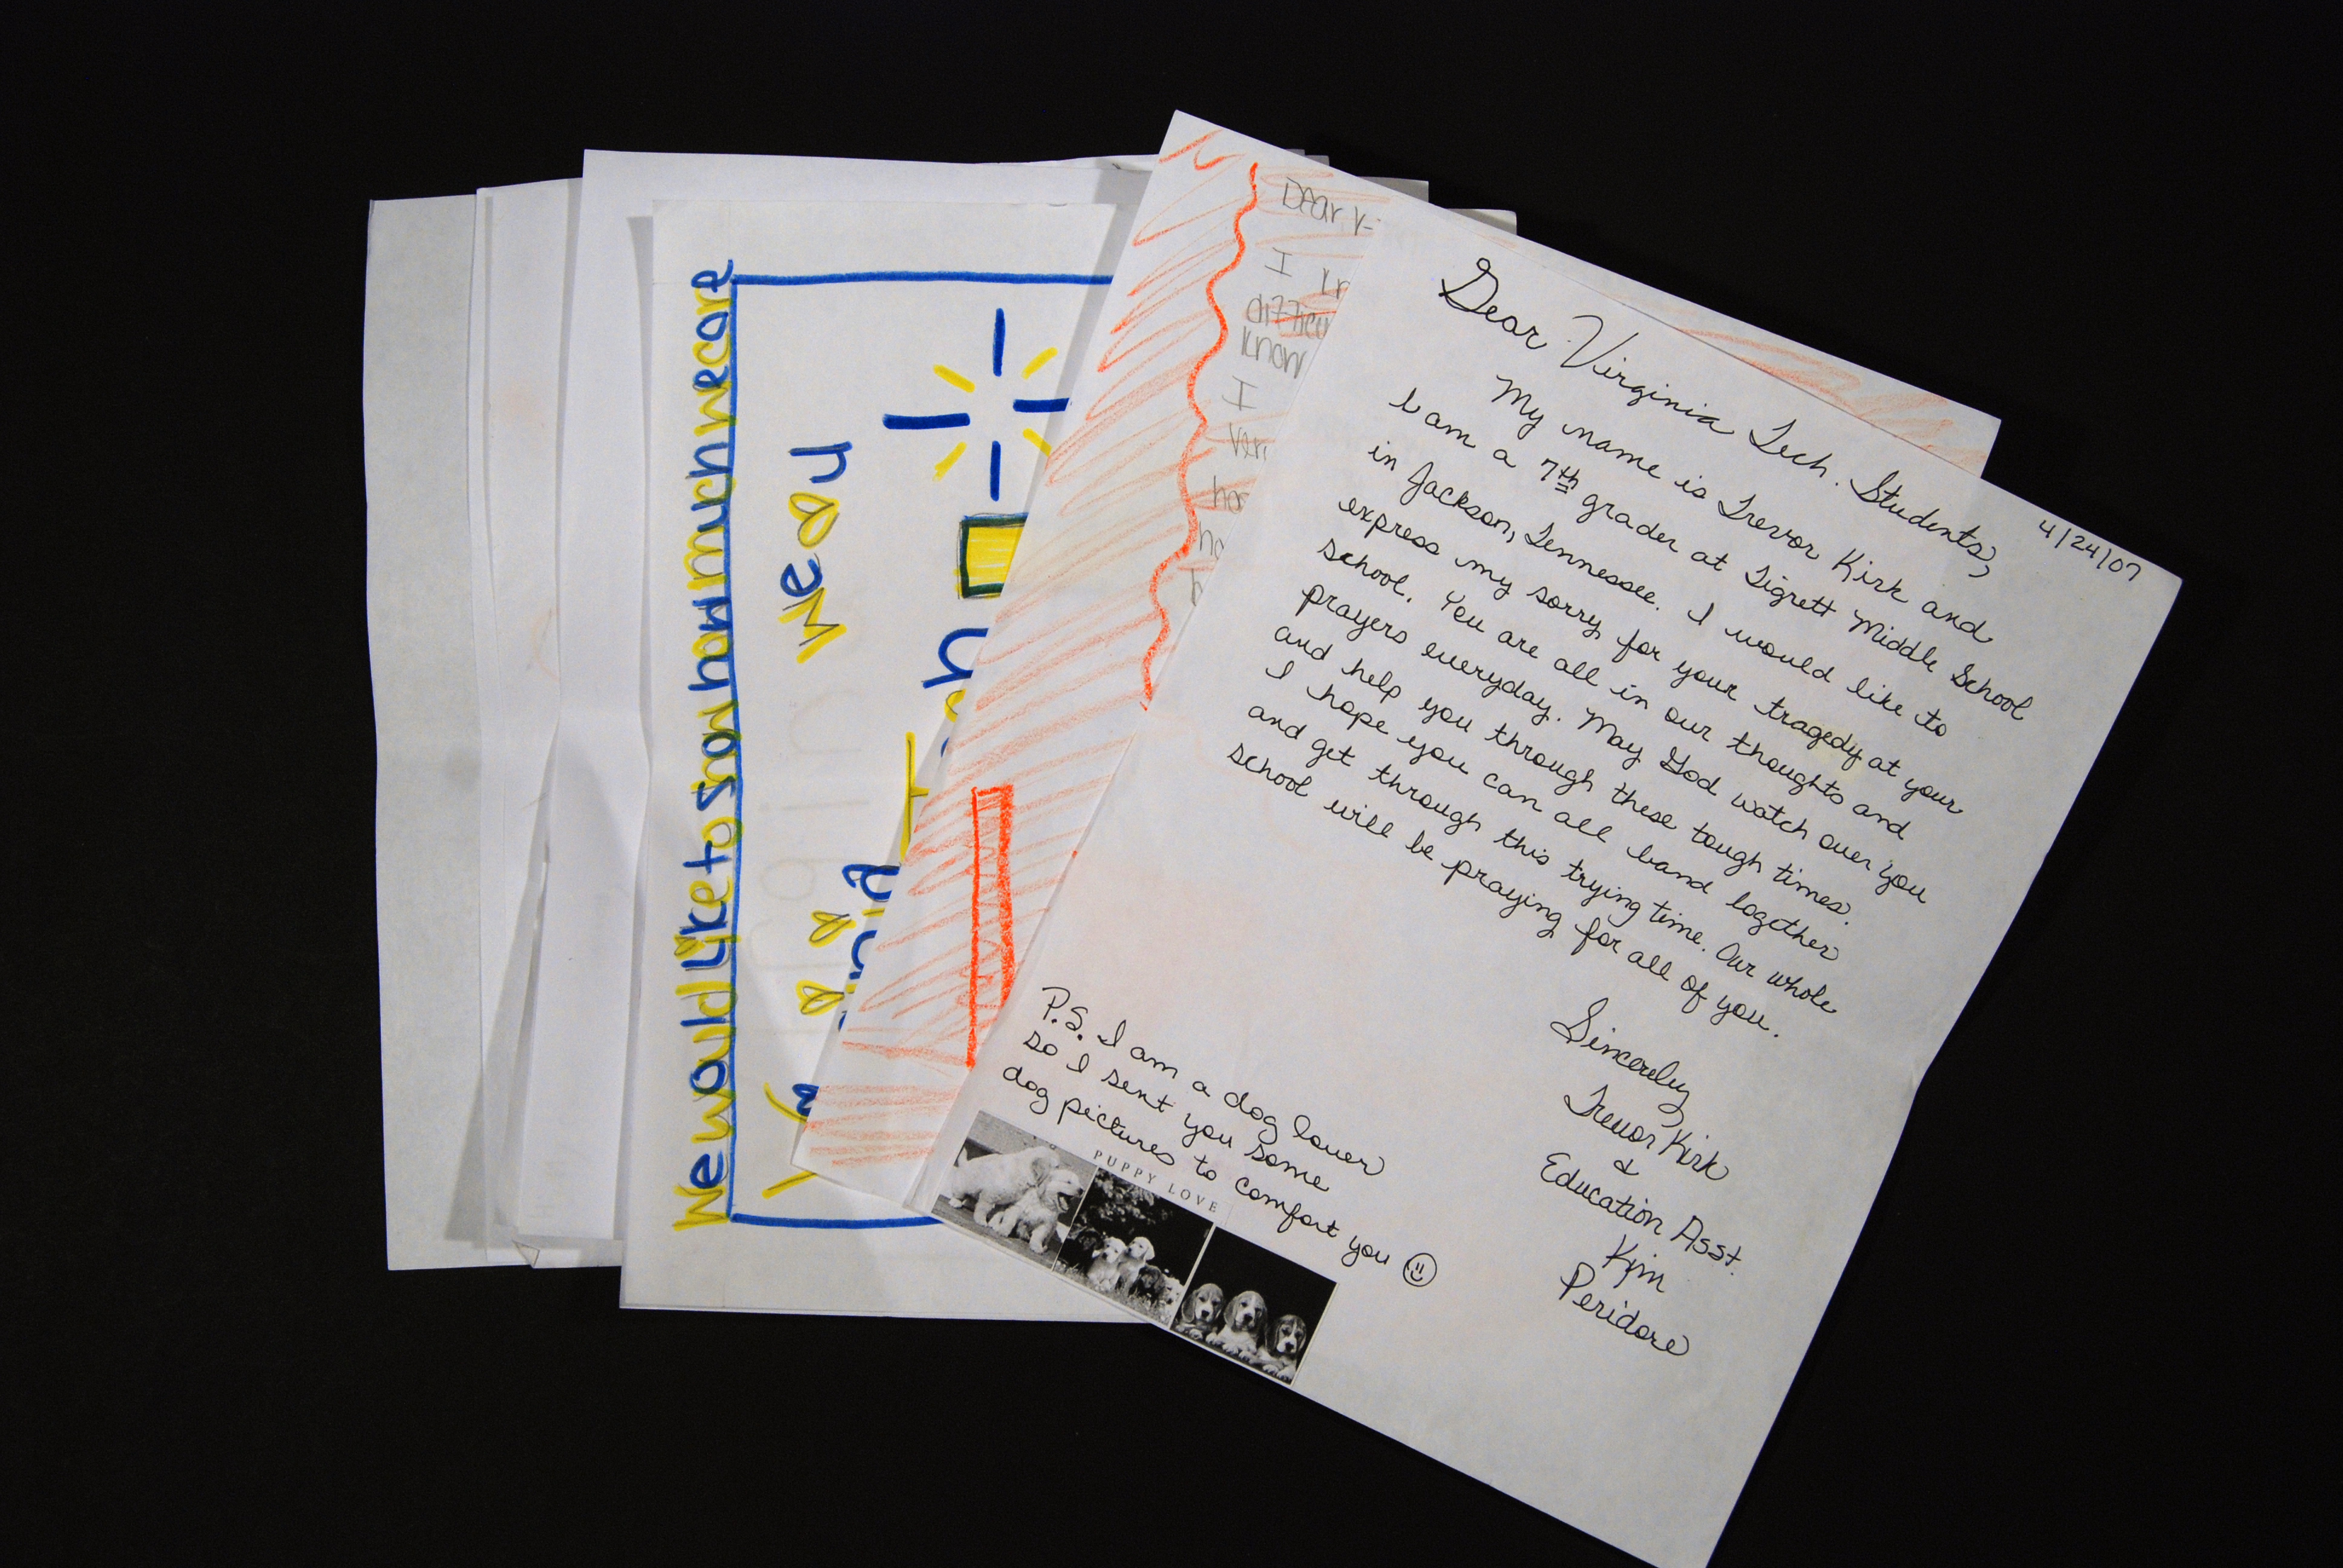 4/24/07
Dear Virginia Tech. Students,
My name is Trevor Kirk and
I am a 7th grader at Tigrett Middle School
in Jackson, Tennessee. I would like to
express my sorry for your tragedy at your
school. You are all in our thoughts and
prayers everyday. May God watch over you
and help you through these tough times.
I hope you can all band together
and get through this trying time. Our whole
school will be praying for all of you.
Sincerely
Trevor Kirk
&
Education Asst.
Kim
Peridore
P.S. I am a dog lover
so I sent you some
dog pictures to comfort you
PUPPY LOVE
Dear V
I
know
I
We would like to say how much we care
we